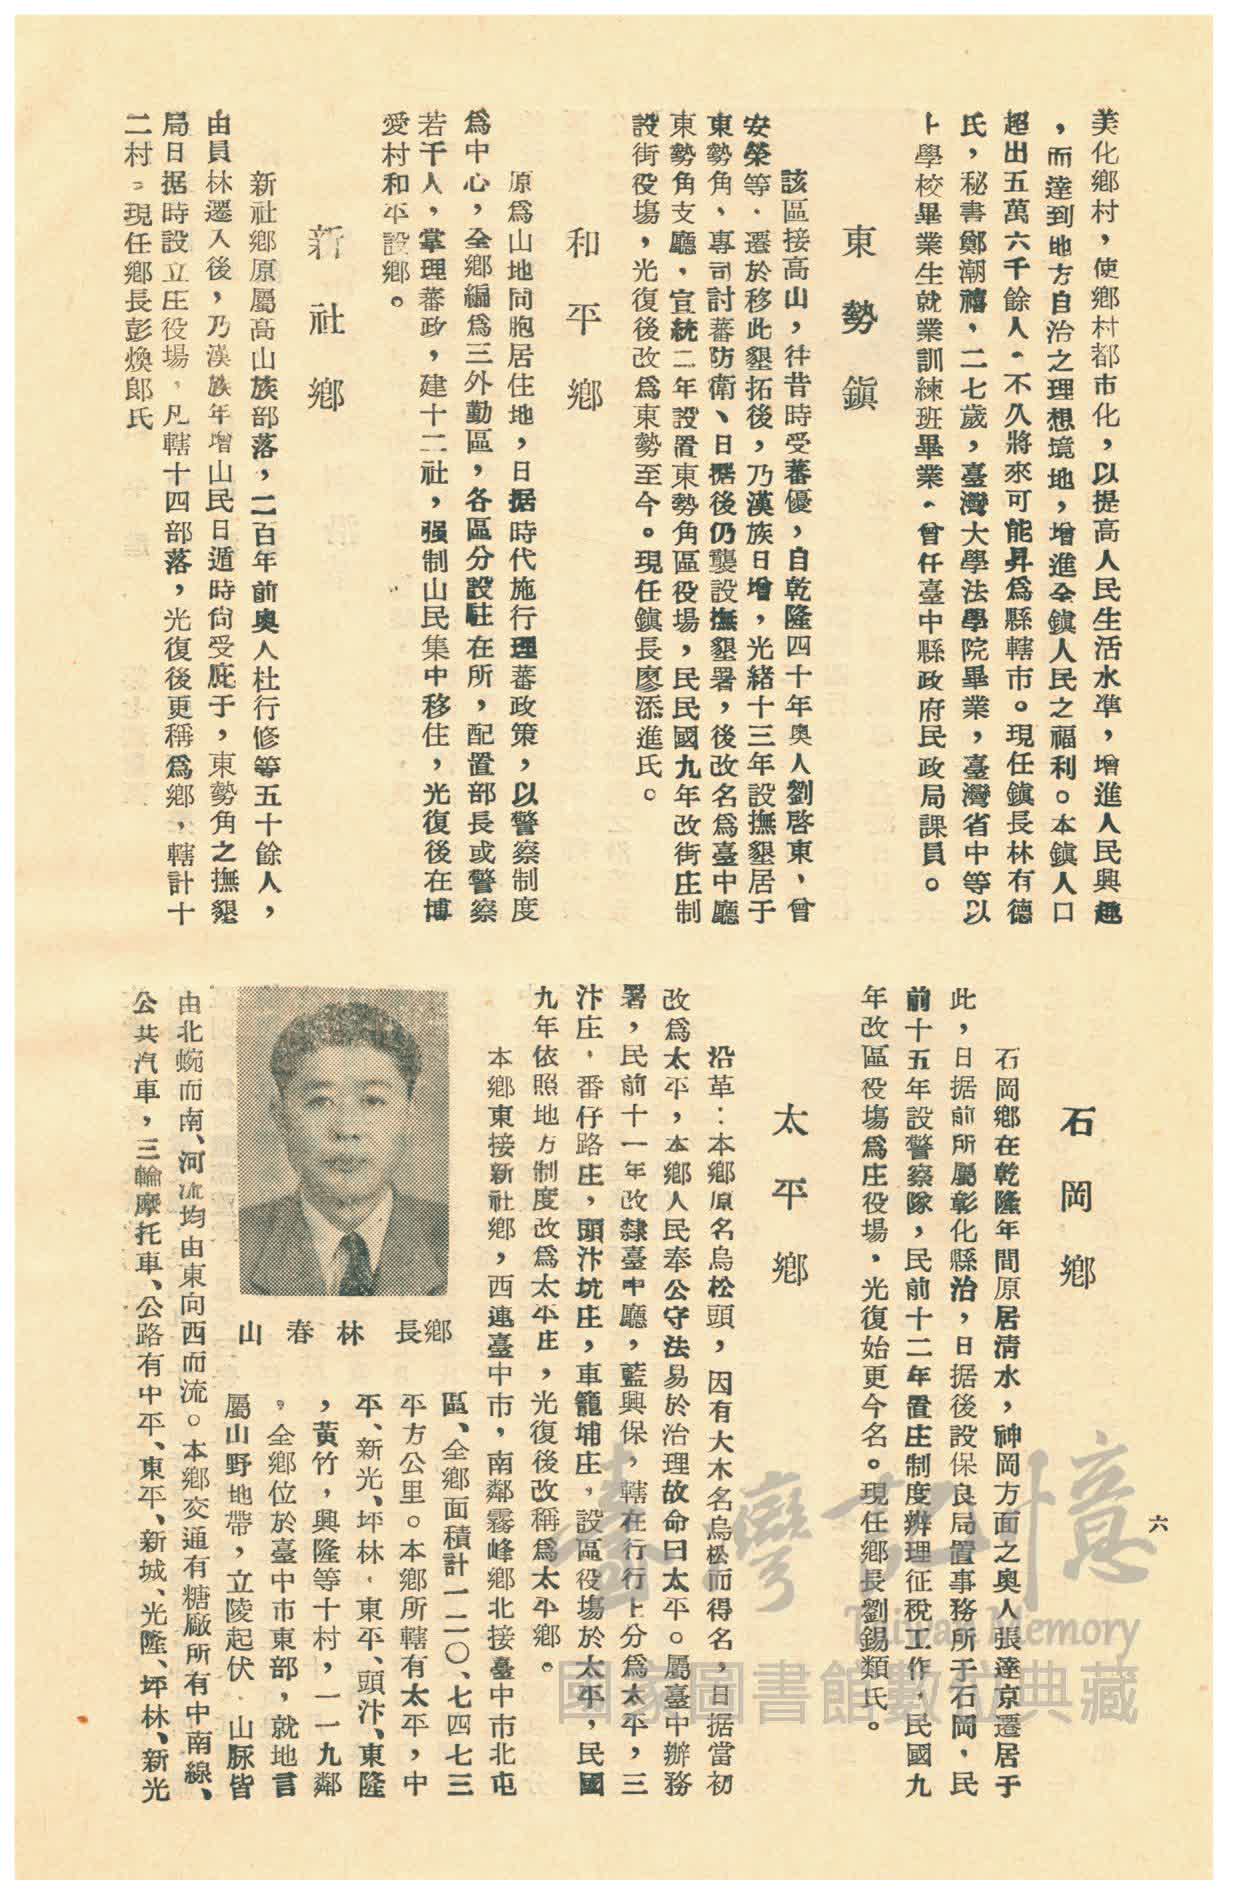 美化鄉村，使鄉村都市化，以提高人民生活水準，增進人民興趣
，而達到地方自治之理想境地，增進全鎮人民之福利。本鎮人口
超出五萬六千餘人。不久將來可能昇爲縣轄市。現任鎮長林有德
氏，秘書鄭潮禧，二七歲，臺灣大學法學院畢業，臺灣省中等以
上學校畢業生就業訓練班畢業，曾任臺中縣政府民政局課員。
東勢鎮
該區接高山，往昔時受蕃優，自乾隆四十年奧人劉啓東，曾
安榮等，遷於移此墾拓後，乃漢族日增，光緒十三年設撫墾居于
東勢角，專司討蕃防衛、日据後仍襲設撫墾署，後改名爲臺中廳
東勢角支廳，宣統二年設置東勢角區役場，民民國九年改街庄制
設街役塲，光復後改爲東勢至今。現任鎮長廖添進氏。
和平鄉
原爲山地同胞居住地，日据時代施行理蕃政策，以警察制度
爲中心，全鄉編爲三外勤區，各區分設駐在所，配置部長或警察
若干人，掌理蕃政，建十二社，强制山民集中移住，光復後在博
愛村和平設鄉。
新社鄉
新社鄉原屬高山族部落，二百年前奧人杜行修等五十餘人，
由員林遷入後，乃漢族年增山民日遁時尙受庇于，東勢角之撫墾
局日据時設立庄役場，凡轄十四部落，光復後更稱爲鄉，轄計十
二村。現任鄉長彭煥郎氏
石岡鄉
石岡鄉在乾隆年間原居淸水，神岡方面之奧人張達京遷居于
此，日据前所屬彰化縣治，日据後設保良局置事務所于石岡，民
前十五年設警察隊，民前十二年置庄制度辦理征稅工作，民國九
年改區役塲爲庄役場，光復始更今名。現任鄉長劉錫類氏。
太平鄉
沿革：本鄉原名烏松頭，因有大木名烏松而得名，日据當初
改爲太平，本鄉人民奉公守法易於治理故命曰太平。屬臺中辦務
署，民前十一年改隸臺中廳，藍興保，轄在行行上分爲太平，三
汴庄，番仔路庄，頭汴坑庄，車籠埔庄，設區役塲於太平，民國
九年依照地方制度改爲太平庄，光復後改稱爲太平鄉。
本鄉東接新社鄉，西連臺中市，南鄰霧峰鄉北接臺中市北屯
區、全鄉面積計一二〇、七四七三
平方公里。本鄉所轄有太平，中
平、新光、坪林，東平、頭汴、東隆
，黃竹，興隆等十村，一一九鄰
，全鄉位於臺中市東部，就地言
屬山野地帶，立陵起伏，山脈皆
由北蜿而南、河流均由東向西而流。本鄉交通有糖廠所有中南線、
公共汽車，三輪摩托車、公路有中平、東平、新城、光隆、坪林、新光
鄉長 林春山
六
臺灣記憶
Taiwan Memory
國家圖書館數位典藏